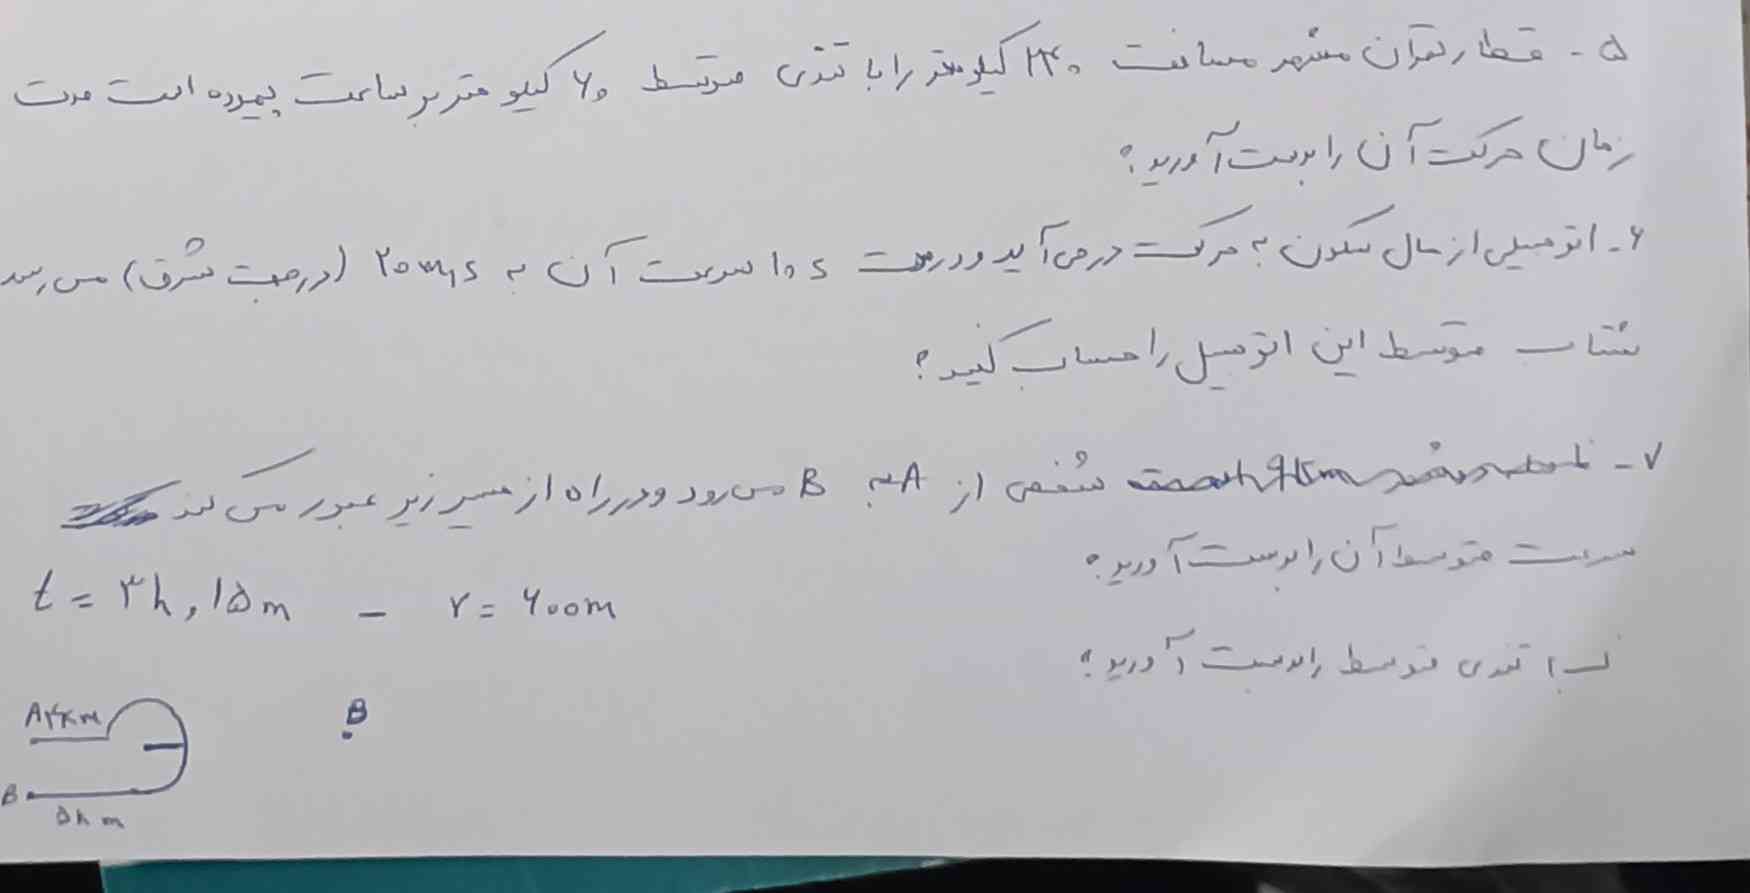 ۵- قطار تهران مشهد مسافت ۲۴۰ کیلومتر را با تندی متوسط ۶۰ کیلو متر بر ساعت پیموده است مدت
زمان حرکت آن را بدست آورید؟
۶- اتومبیلی از حال سکون به حرکت در می آید و در مدت ۱۰ s سرعت آن به ۲۰ m/s (در جهت شرق) می رسد
شتاب متوسط این اتومبیل را حساب کنید؟
۷- شخصی از A به B می رود و در راه از مسیر زیر عبور می کند
سرعت متوسط آن را بدست آورید؟
t = ۳h, ۱۵m - r = ۶۰۰m
ب) تندی متوسط را بدست آورید؟
A ۴km
B
B
۵km